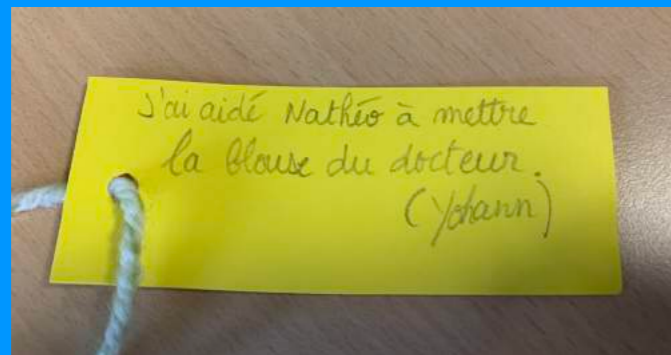 J'ai aidé Nathéo à mettre
la blouse du docteur.
(Yohann)